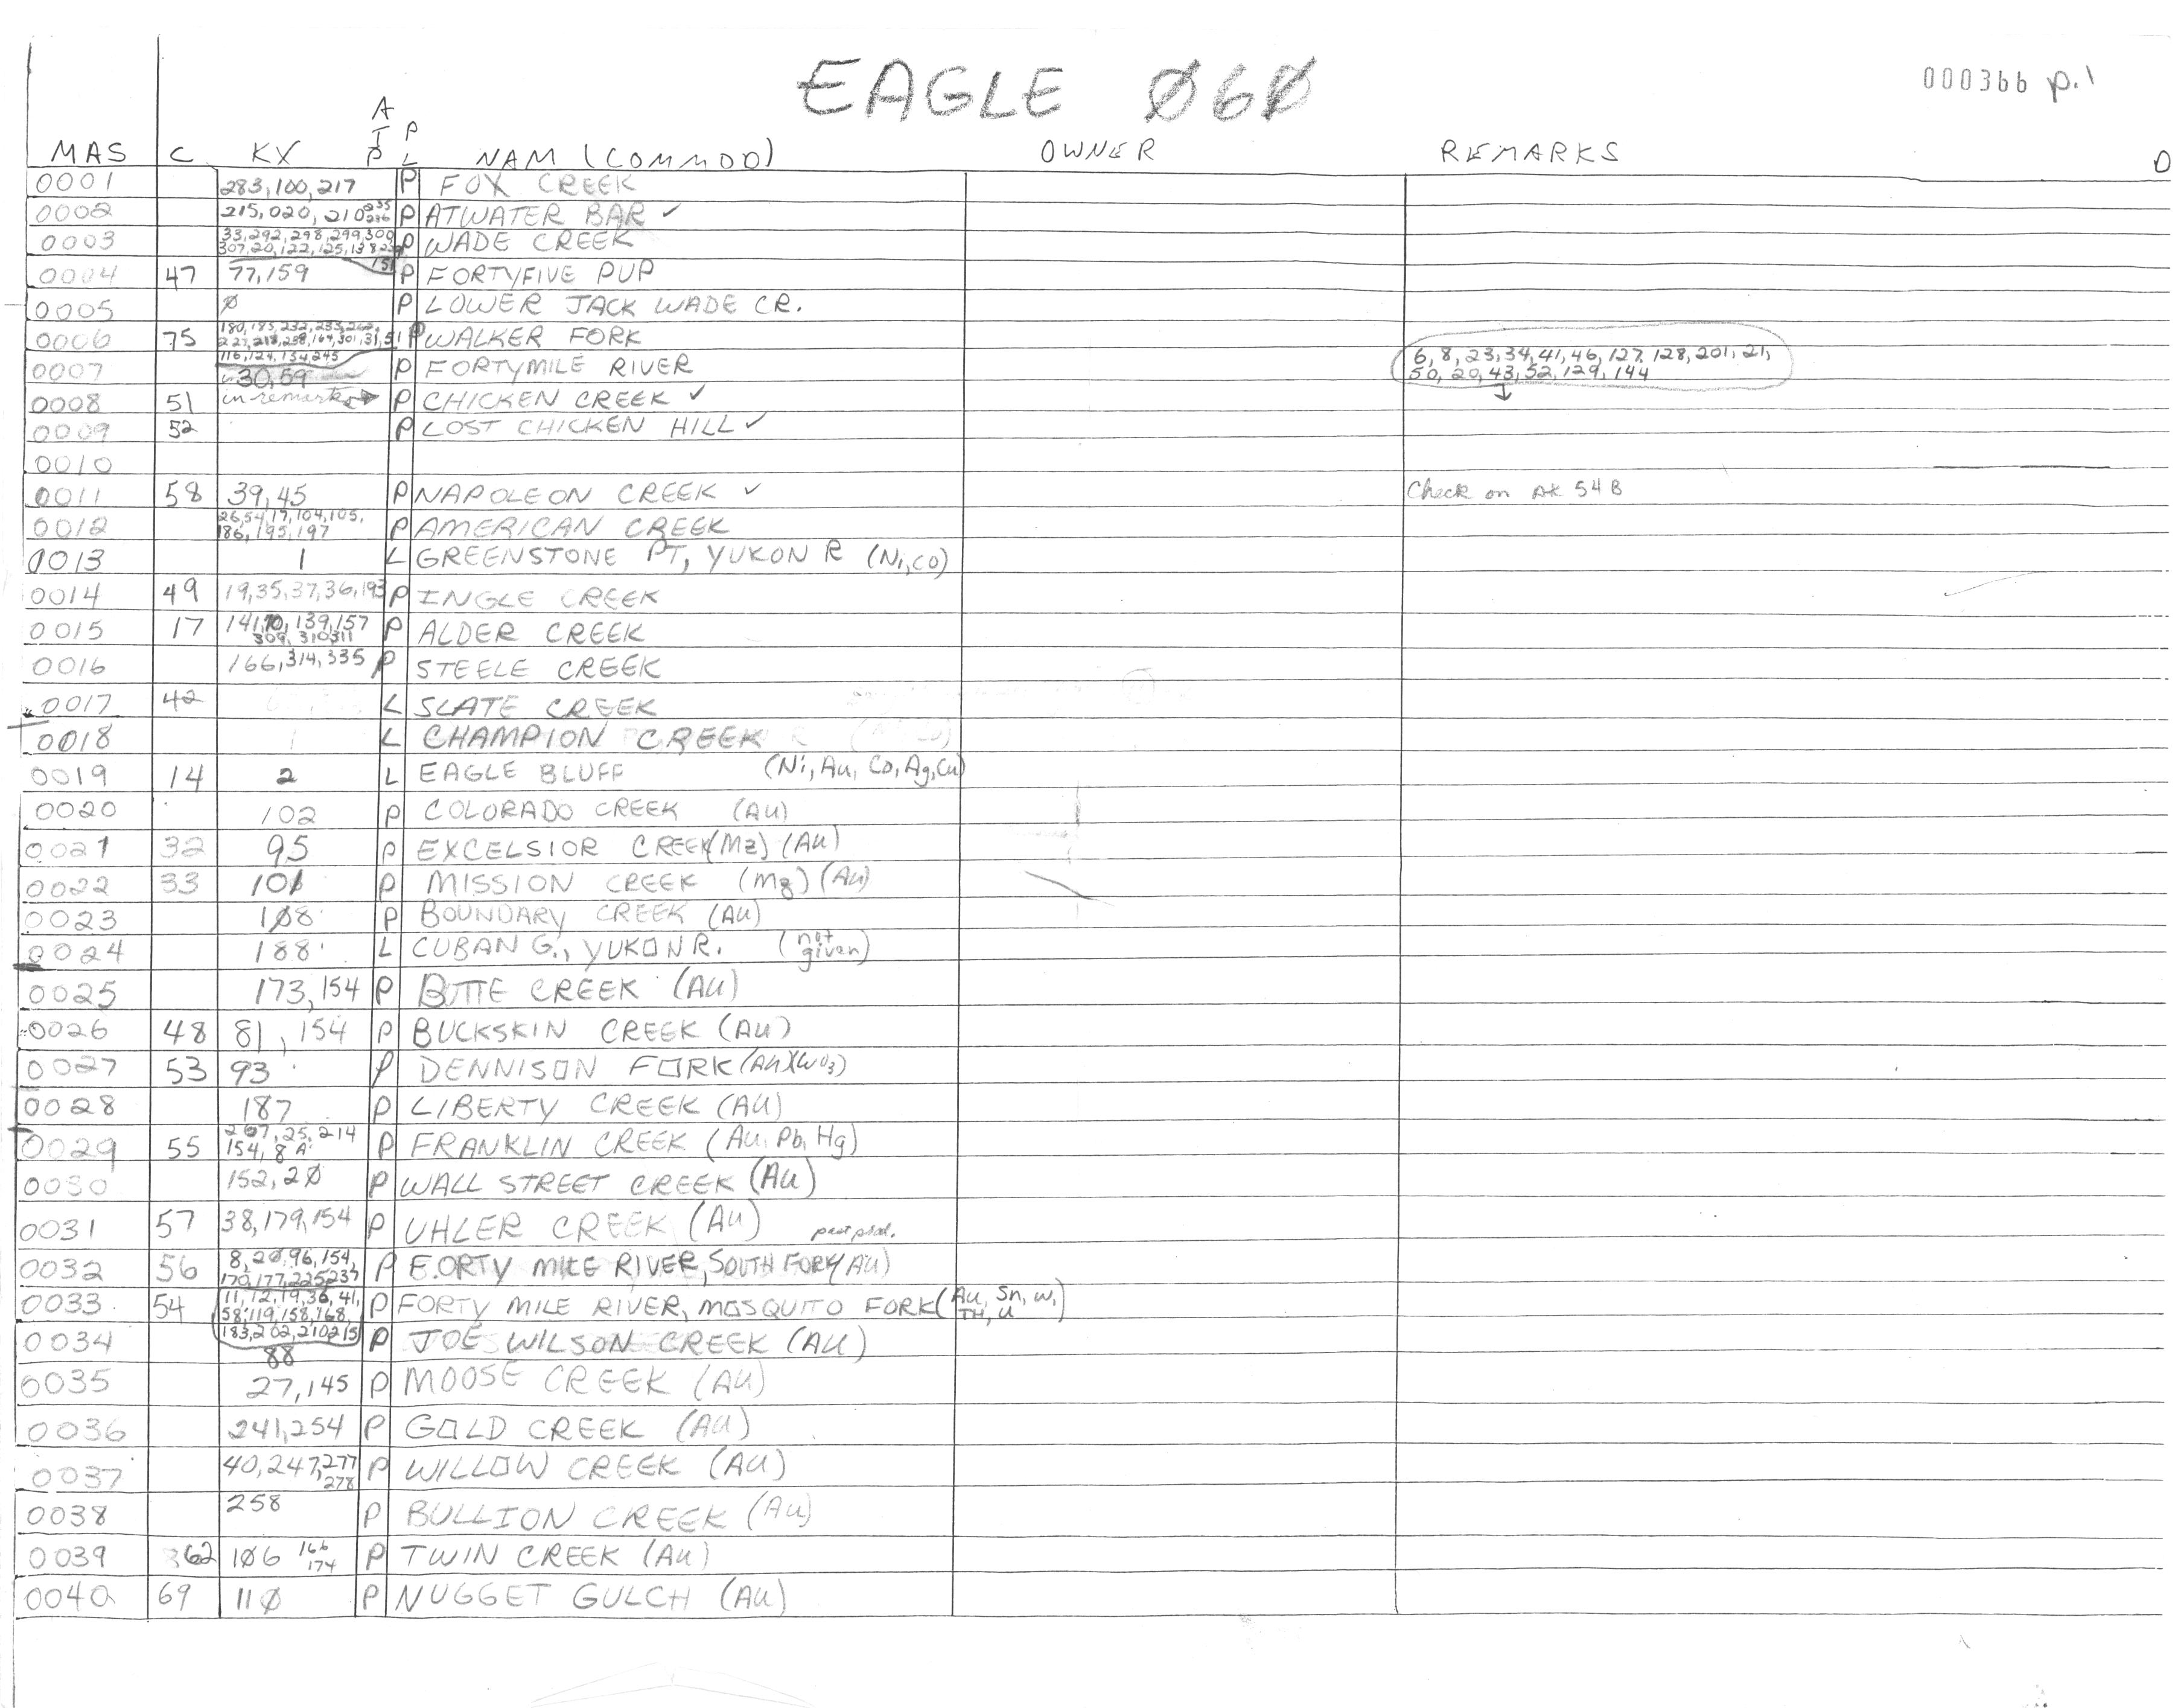 EAGLE Ø6Ø
000366 p.1
MAS C KX ATP PL NAM (COMMOD) OWNER REMARKS D
0001 283,100,217 P FOX CREEK
0002 215,020,210 235 236 P ATWATER BAR ✓
0003 33,292,298,299,300 307,20,122,125,138 151 P WADE CREEK
0004 47 77,159 P FORTYFIVE PUP
0005 Ø P LOWER JACK WADE CR.
0006 75 180,185,232,233, 227,218,238,164,301,31,51 116,124,134,245 P WALKER FORK
0007 30,59 P FORTYMILE RIVER 6,8,23,34,41,46,127,128,201,21,
50,20,43,52,129,144
0008 51 in remarks → P CHICKEN CREEK ✓
0009 52 P LOST CHICKEN HILL ✓
0010
0011 58 39,45 P NAPOLEON CREEK ✓ Check on AK 54B
0012 26,54,17,104,105, 186,195,197 P AMERICAN CREEK
0013 1 L GREENSTONE PT, YUKON R (Ni,CO)
0014 49 19,35,37,36,193 P INGLE CREEK
0015 17 141,10,139,157 309,310311 P ALDER CREEK
0016 166,314,335 P STEELE CREEK
0017 42 L SLATE CREEK
0018 L CHAMPION CREEK
0019 14 2 L EAGLE BLUFF (Ni,Au,Co,Ag,Cu)
0020 102 P COLORADO CREEK (AU)
0021 32 95 P EXCELSIOR CREEK(M2) (AU)
0022 33 101 P MISSION CREEK (M8) (AU)
0023 1Ø8 P BOUNDARY CREEK (AU)
0024 188 L CUBAN G., YUKON R. (not given)
0025 173,154 P BUTTE CREEK (AU)
0026 48 81,154 P BUCKSKIN CREEK (AU)
0027 53 93 P DENNISON FORK (AU)(WO3)
0028 187 P LIBERTY CREEK (AU)
0029 55 267,25,214 154,8A P FRANKLIN CREEK (Au,Pb,Hg)
0030 152,2Ø P WALL STREET CREEK (AU)
0031 57 38,179,154 P UHLER CREEK (AU) past prod.
0032 56 8,2Ø,96,154, 170,177,225,237 P FORTY MILE RIVER, SOUTH FORK (AU)
0033 54 11,12,19,36,41, 58,119,158,168, 183,202,210215 P FORTY MILE RIVER, MOSQUITO FORK (Au,Sn,W, TH,U
0034 88 P JOE WILSON CREEK (AU)
0035 27,145 P MOOSE CREEK (AU)
0036 241,254 P GOLD CREEK (AU)
0037 40,247,277 278 P WILLOW CREEK (AU)
0038 258 P BULLION CREEK (AU)
0039 62 1Ø6 166 174 P TWIN CREEK (AU)
0040 69 11Ø P NUGGET GULCH (AU)